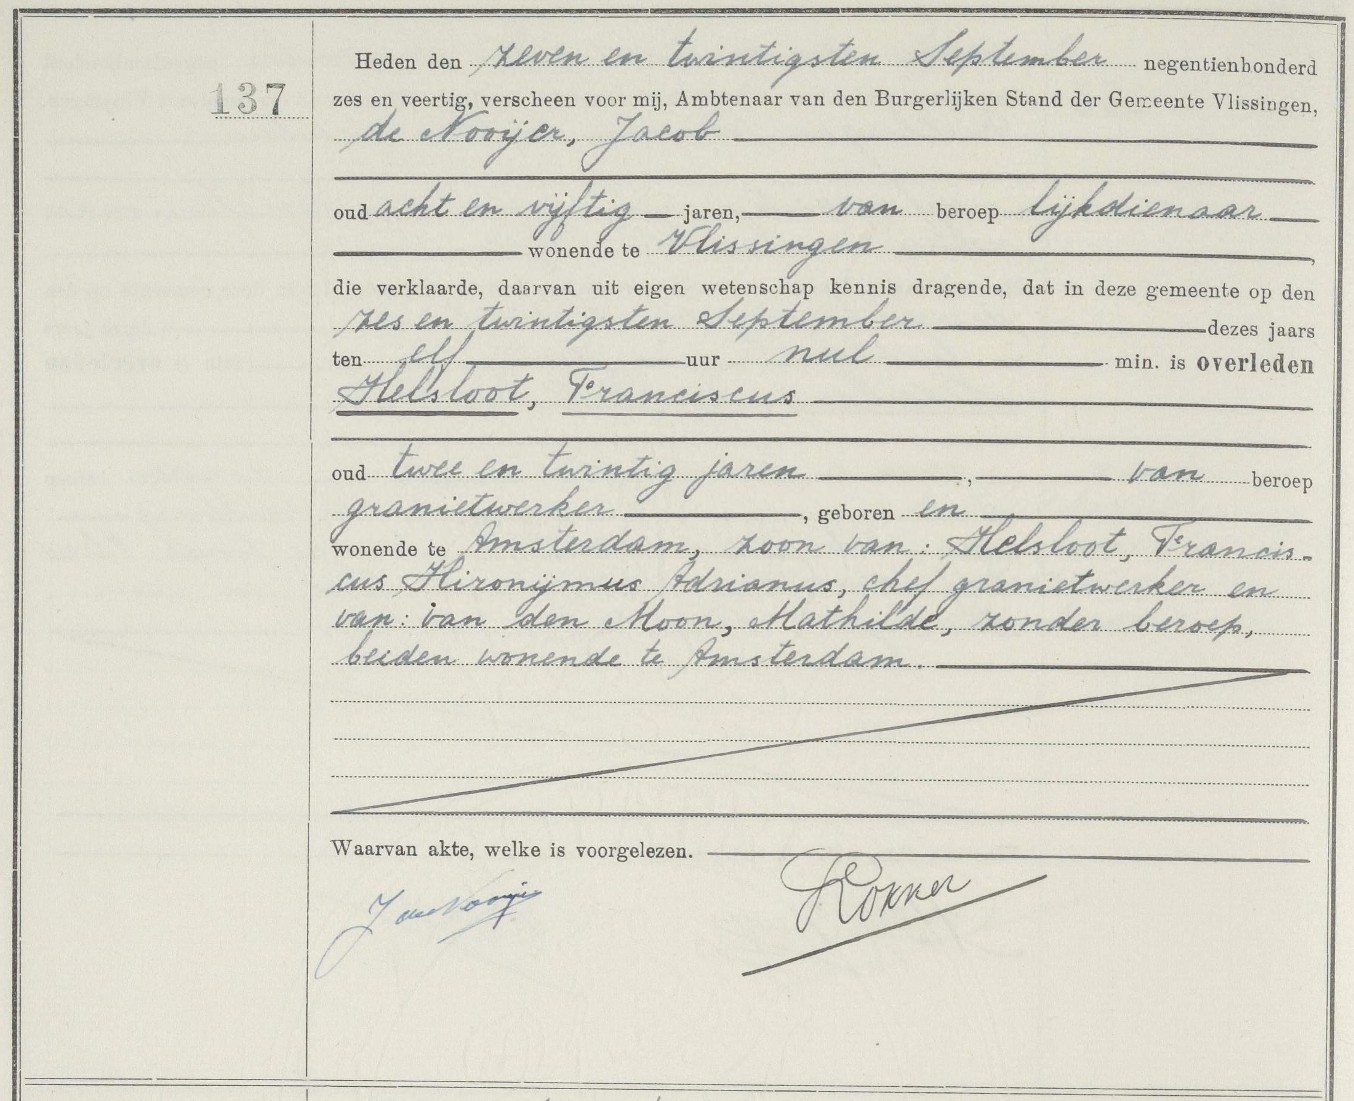 137
Heden den zeven en twintigsten September negentienhonderd
zes en veertig, verscheen voor mij, Ambtenaar van den Burgerlijken Stand der Gemeente Vlissingen,
de Nooijer, Jacob
oud acht en vijftig jaren, van beroep lijkdienaar
wonende te Vlissingen,
die verklaarde, daarvan uit eigen wetenschap kennis dragende, dat in deze gemeente op den
zes en twintigsten September dezes jaars
ten elf uur nul min. is overleden
Helsloot, Franciscus
oud twee en twintig jaren, van beroep
granietwerker, geboren en
wonende te Amsterdam, zoon van: Helsloot, Francis-
cus Hironijmus Adrianus, chef granietwerker en
van: van den Moon, Mathilde, zonder beroep,
beiden wonende te Amsterdam.
Waarvan akte, welke is voorgelezen.
J de Nooije